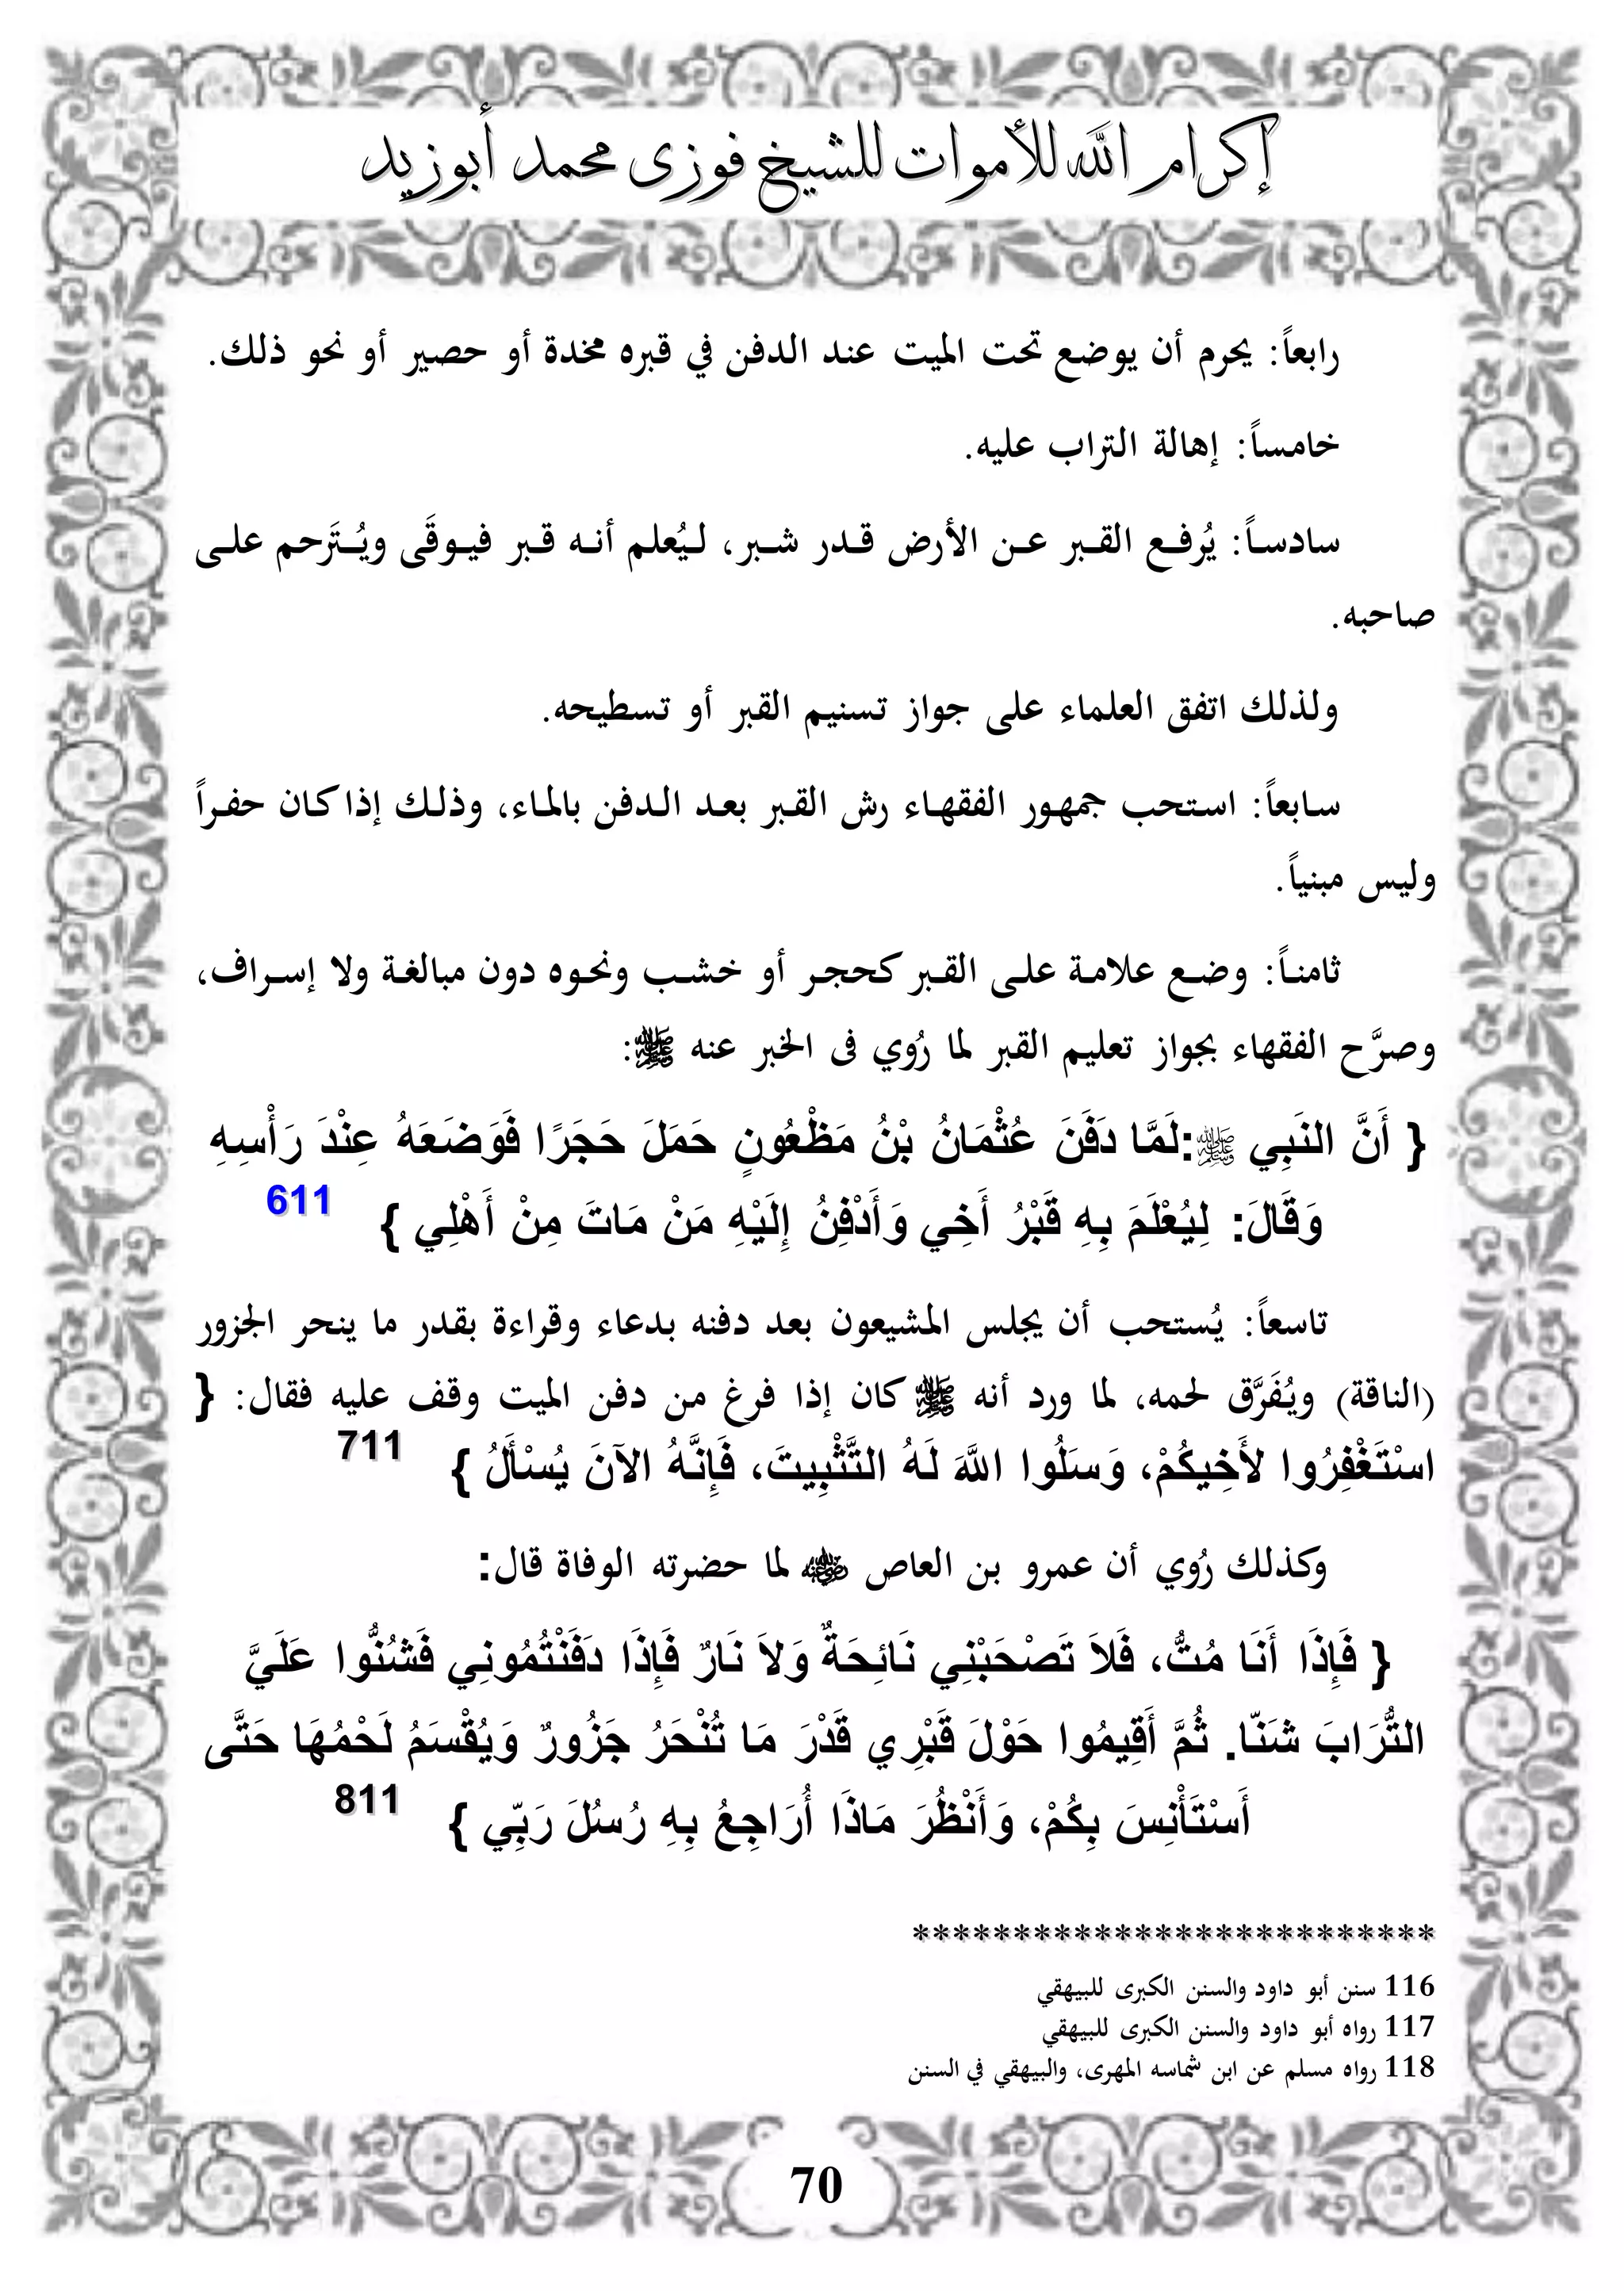 إكرام الله للأموات للشيخ فوزى محمد أبوزيد
رابعاً: يحرم أن يوضع تحت الميت عند الدفن في قبره مخدة أو حصير أو نحو ذلك.
خامساً: إهالة التراب عليه.
سادساً: يُرفع القبر عن الأرض قدر شبر، ليُعلم أنه قبر فيوقَى ويُتَرحم على
صاحبه.
ولذلك اتفق العلماء على جواز تسنيم القبر أو تسطيحه.
سابعاً: استحب جمهور الفقهاء رش القبر بعد الدفن بالماء، وذلك إذا كان حفراً
وليس مبنياً.
ثامناً: وضع علامة على القبر كحجر أو خشب ونحوه دون مبالغة ولا إسراف،
وصرَّح الفقهاء بجواز تعليم القبر لما رُوي فى الخبر عنه ﷺ:
{ أَنَّ النَبِي ﷺ:لَمَّا دَفَنَ عُثْمَانُ بْنُ مَظْعُونٍ حَمَلَ حَجَرًا فَوَضَعَهُ عِنْدَ رَأْسِهِ
وَقَالَ: لِيُعْلَمَ بِهِ قَبْرُ أَخِي وَأَدْفِنُ إِلَيْهِ مَنْ مَاتَ مِنْ أَهْلِي } 611
تاسعاً: يُستحب أن يجلس المشيعون بعد دفنه بدعاء وقراءة بقدر ما ينحر الجزور
(الناقة) ويُفَرَّق لحمه، لما ورد أنه ﷺ كان إذا فرغ من دفن الميت وقف عليه فقال: {
اسْتَغْفِرُوا لأَخِيكُمْ، وَسَلُوا اللَّهَ لَهُ التَّثْبِيتَ، فَإِنَّهُ الآنَ يُسْأَلُ } 711
وكذلك رُوي أن عمرو بن العاص ﵁ لما حضرته الوفاة قال:
{ فَإِذَا أَنَا مُتُّ، فَلاَ تَصْحَبْنِي نَائِحَةٌ وَلاَ نَارٌ فَإِذَا دَفَنْتُمُونِي فَشُنُّوا عَلَيَّ
التُّرَابَ شَنّا. ثُمَّ أَقِيمُوا حَوْلَ قَبْرِي قَدْرَ مَا تُنْحَرُ جَزُورٌ وَيُقْسَمُ لَحْمُهَا حَتَّى
أَسْتَأْنِسَ بِكُمْ، وَأَنْظُرَ مَاذَا أُرَاجِعُ بِهِ رُسُلَ رَبِّي } 811
**************************
116 سنن أبو داود والسنن الكبرى للبيهقي
117 رواه أبو داود والسنن الكبرى للبيهقي
118 رواه مسلم عن ابن شماسه المهرى، والبيهقي في السنن
70